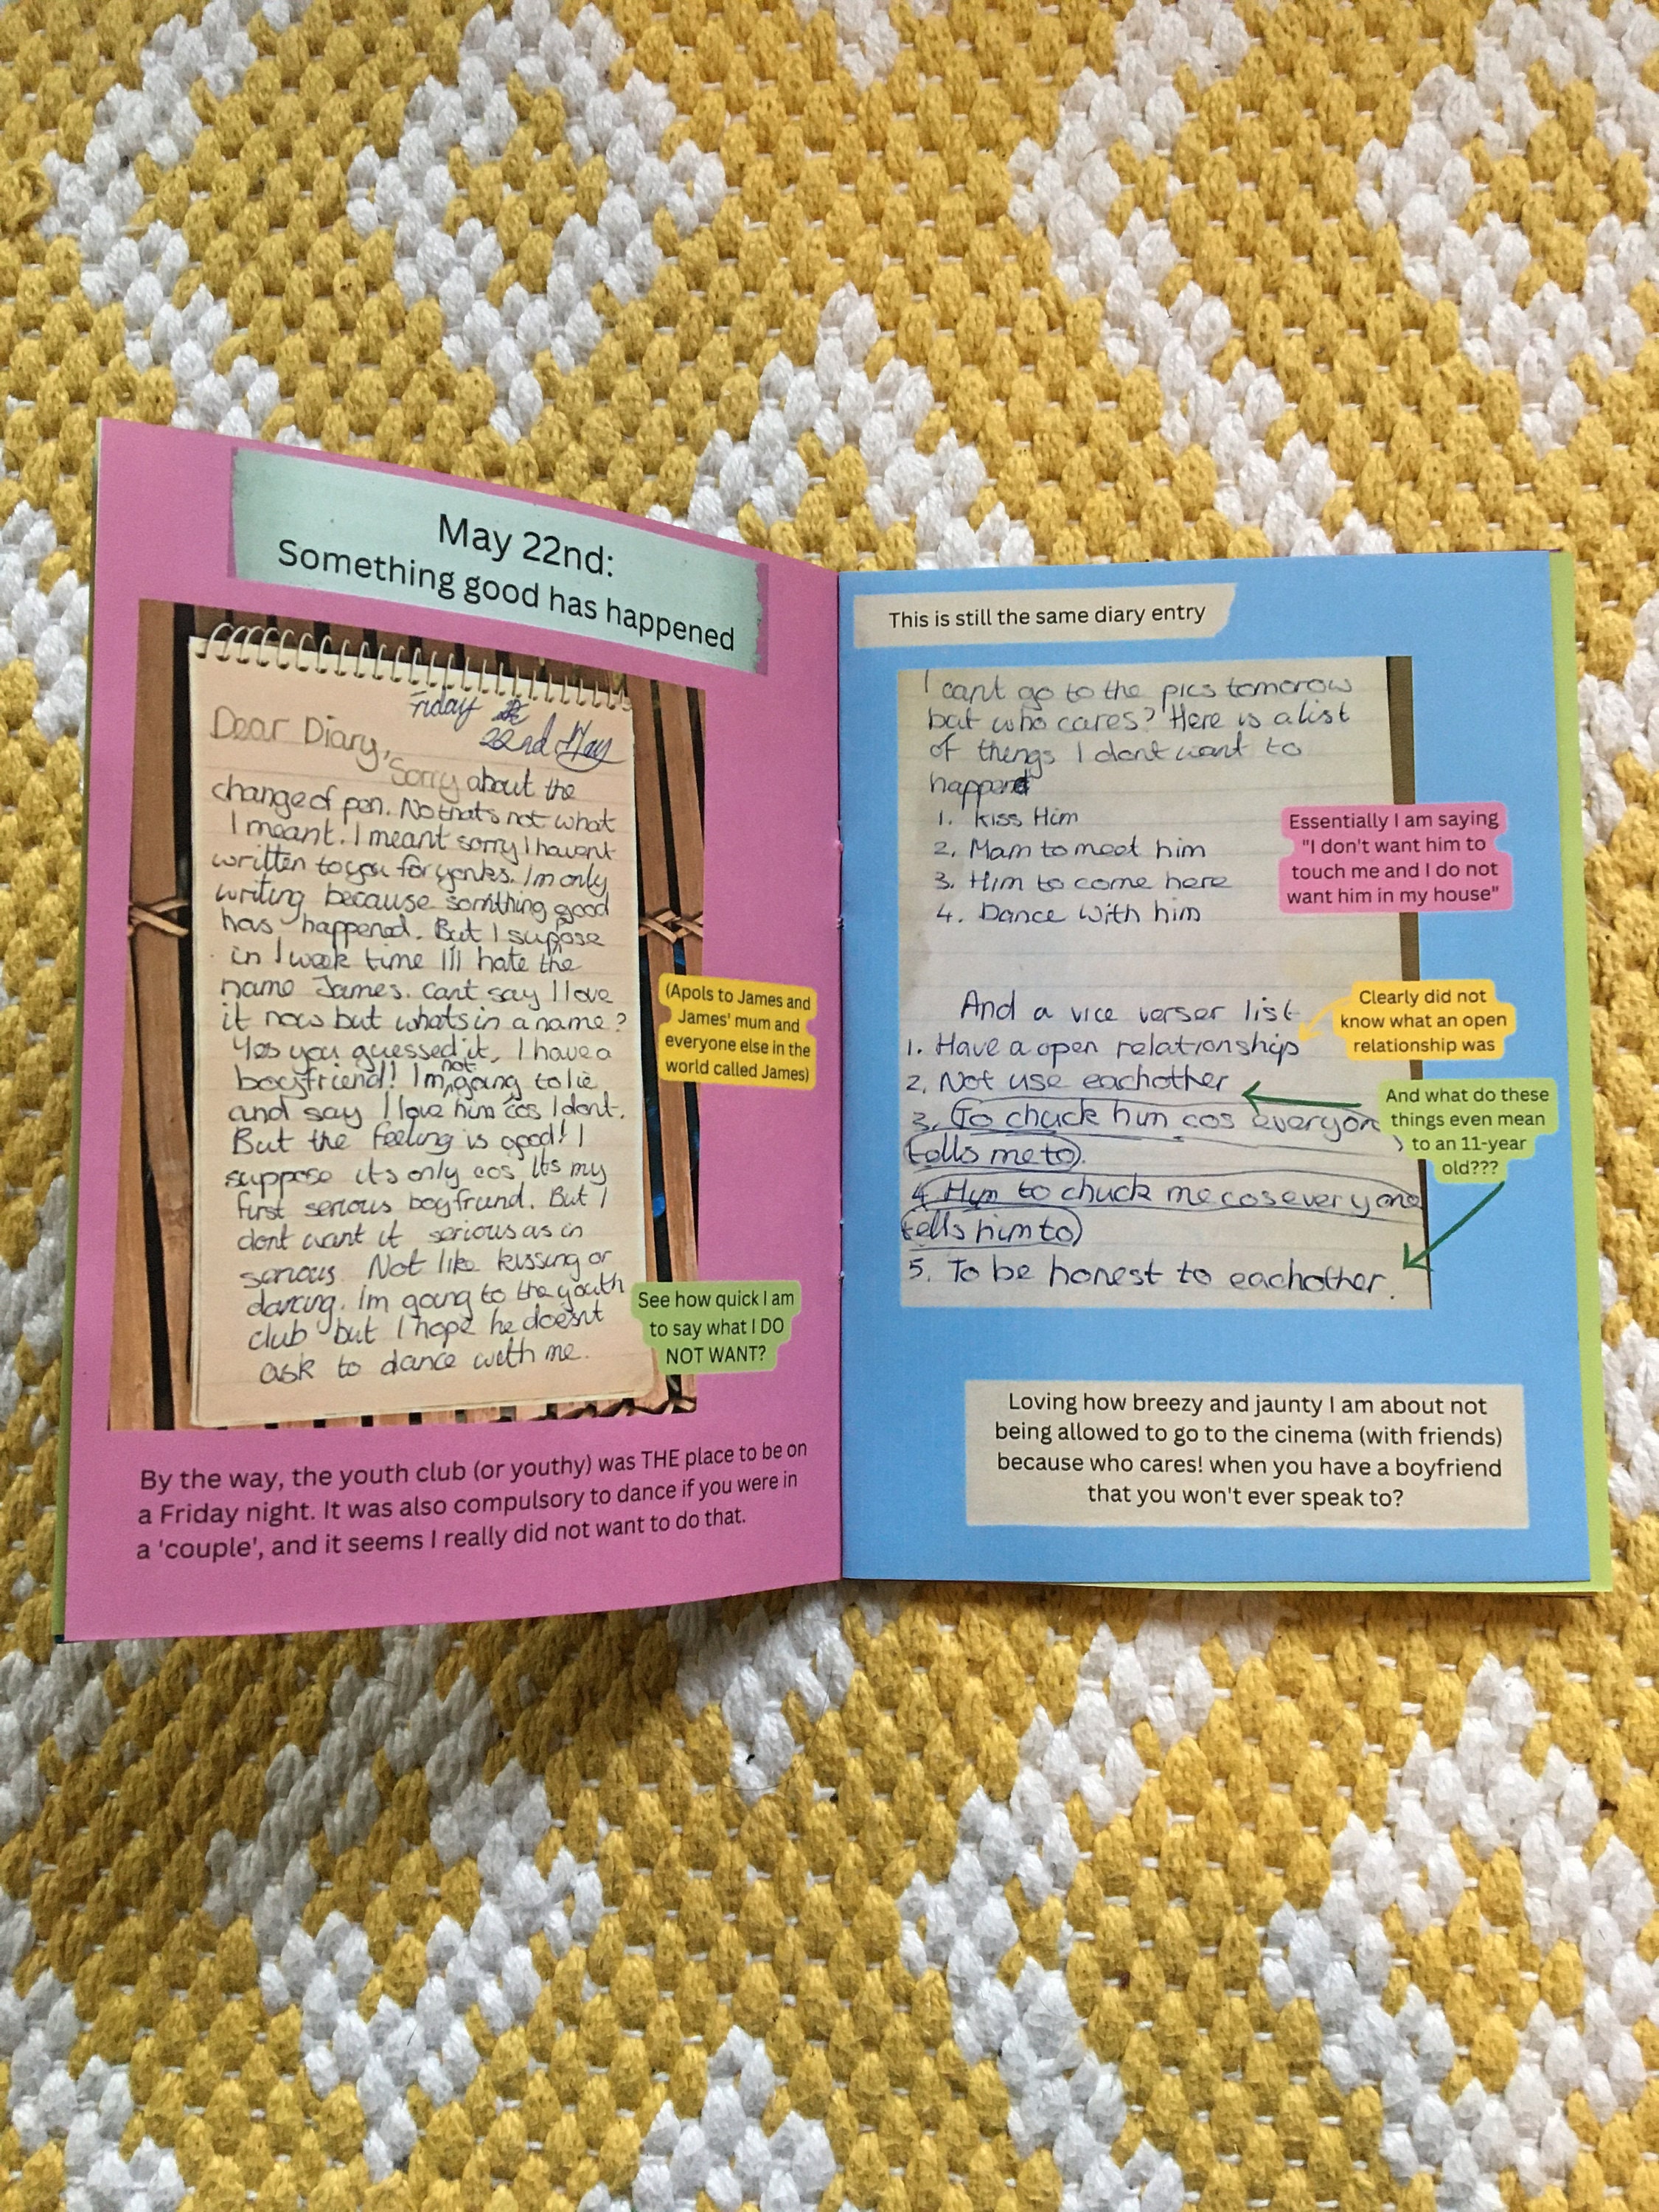 May 22nd:
Something good has happened
Friday
22nd May
Dear Diary,
Sorry about the
change of pen. No thats not what
I meant. I meant sorry I havent
written to you for yonks. Im only
writing because somthing good
has happened. But I supose
in 1 week time Ill hate the
name James. Cant say I love
it now but whats in a name?
Yes you guessed it, I have a
boyfriend! Im not going to lie
and say I love him cos I dont.
But the feeling is good! I
suppose its only cos its my
first serious boyfriend. But I
dont want it serious as in
serious. Not like kissing or
dancing. Im going to the youth
club but I hope he doesnt
ask to dance with me.
(Apols to James and
James' mum and
everyone else in the
world called James)
See how quick I am
to say what I DO
NOT WANT?
By the way, the youth club (or youthy) was THE place to be on
a Friday night. It was also compulsory to dance if you were in
a 'couple', and it seems I really did not want to do that.
This is still the same diary entry
I cant go to the pics tomorow
but who cares? Here is a list
of things I dont want to
happen
1. Kiss Him
2. Mam to meet him
3. Him to come here
4. Dance with him
Essentially I am saying
"I don't want him to
touch me and I do not
want him in my house"
And a vice verser list
1. Have a open relationship
2. Not use eachother
3. To chuck him cos everyon
tells me to).
4. Him to chuck me cos everyone
tells him to)
5. To be honest to eachother.
Clearly did not
know what an open
relationship was
And what do these
things even mean
to an 11-year
old???
Loving how breezy and jaunty I am about not
being allowed to go to the cinema (with friends)
because who cares! when you have a boyfriend
that you won't ever speak to?